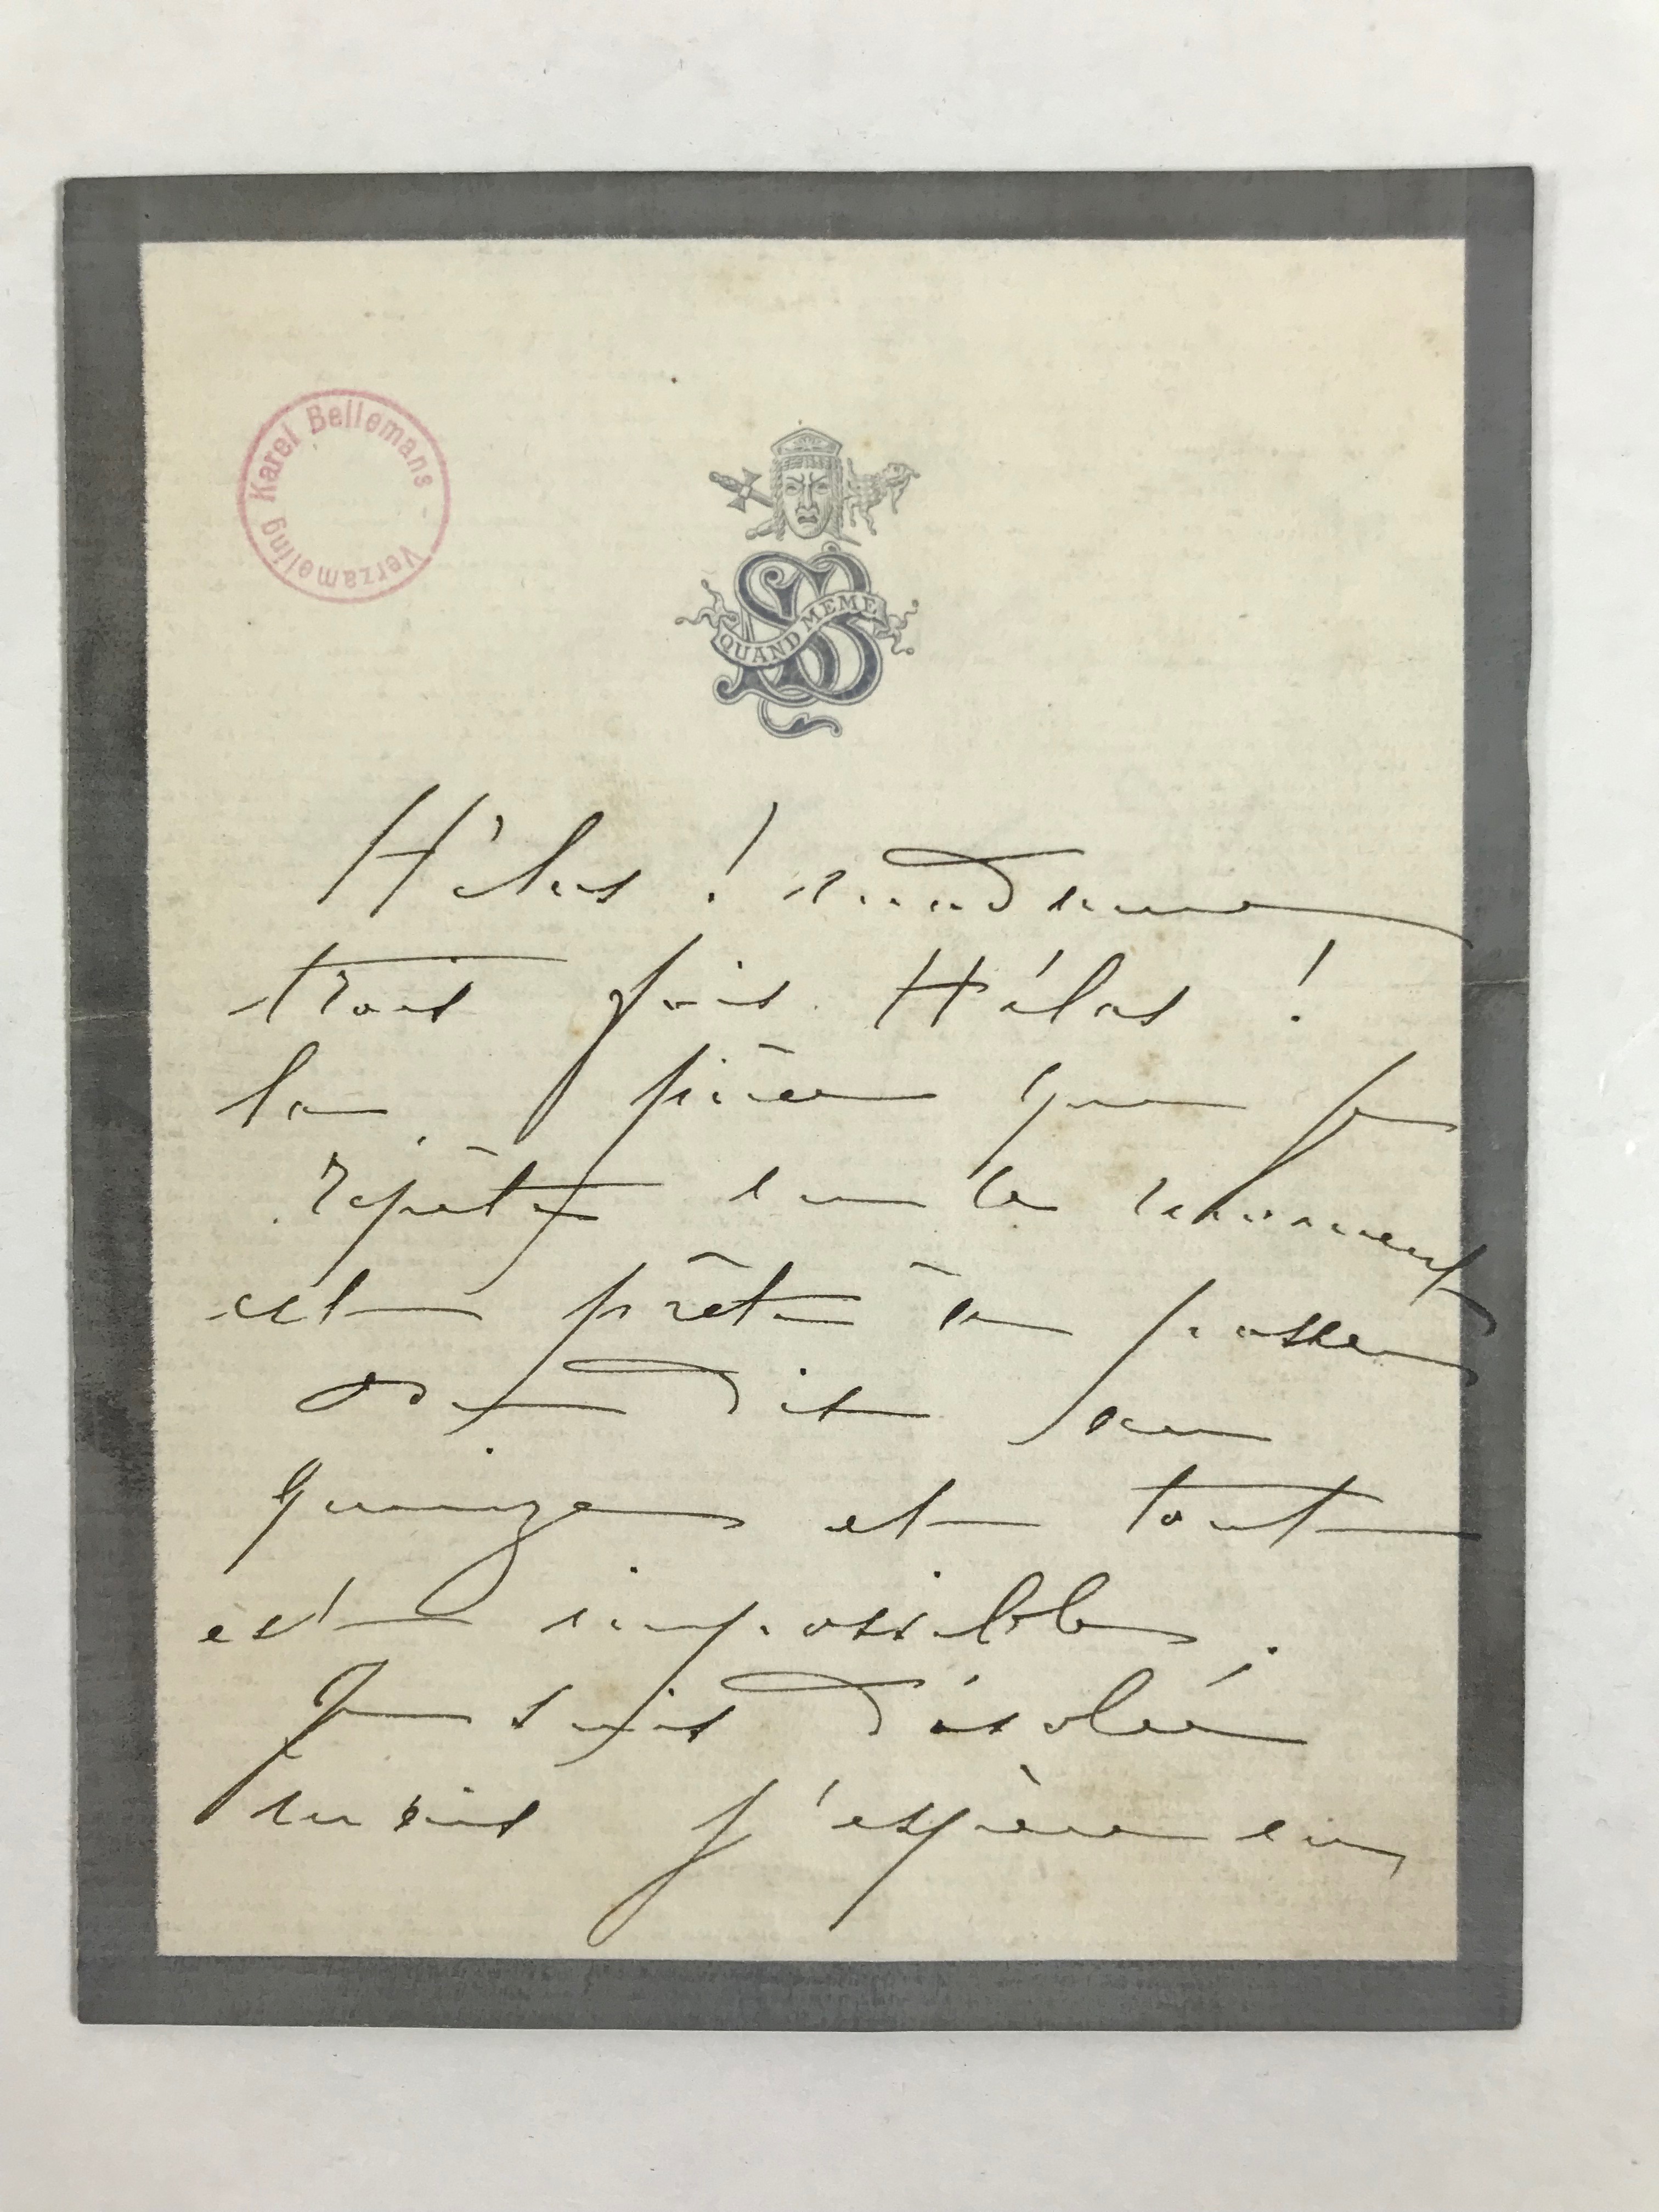 Verzameling Karel Bellemans
QUAND MEME
SB
Hélas ! madame
trois fois Hélas !
la pièce que je
répète en ce moment
est prête à passer
dit
quinze et tout
est impossible.
Je suis désolée
mais j'espère